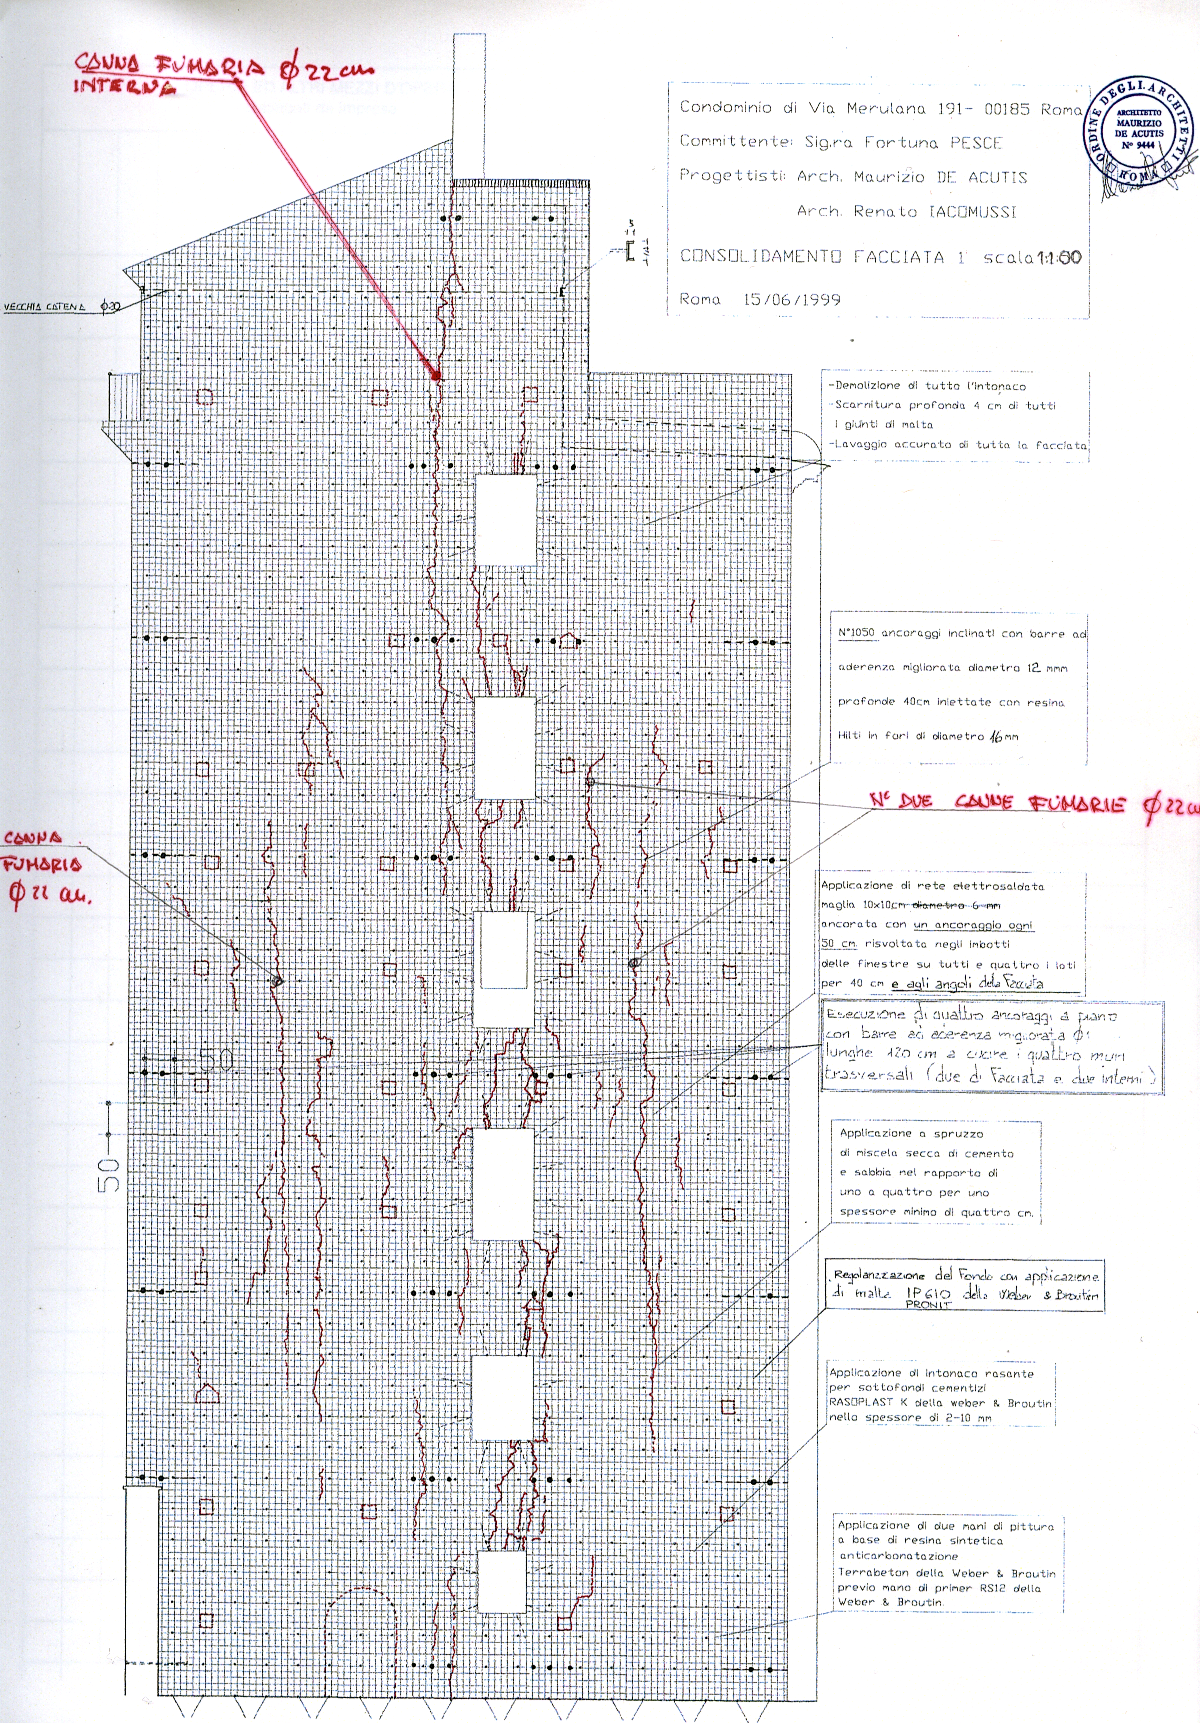 CANNA FUMARIA Ø 22 cm
INTERNA
Condominio di Via Merulana 191- 00185 Roma
Committente: Sig.ra Fortuna PESCE
Progettisti: Arch. Maurizio DE ACUTIS
Arch. Renato IACOMUSSI
CONSOLIDAMENTO FACCIATA 1 scala 1:1:60
Roma 15/06/1999
ORDINE DEGLI ARCHITETTI
ROMA
ARCHITETTO
MAURIZIO
DE ACUTIS
N° 9444
VECCHIA CATENA Φ30
-Demolizione di tutto l'intonaco
-Scarnitura profonda 4 cm di tutti
i giunti di malta
-Lavaggio accurato di tutta la facciata
N°1050 ancoraggi inclinati con barre ad
aderenza migliorata diametro 12 mmm
profonde 40cm iniettate con resina
Hilti in fori di diametro 16mm
N° DUE CANNE FUMARIE Ø 22 cm
CANNA
FUMARIA
Ø 22 cm.
Applicazione di rete elettrosaldata
maglia 10x10cm diametro 6 mm
ancorata con un ancoraggio ogni
50 cm risvoltata negli imbotti
delle finestre su tutti e quattro i lati
per 40 cm e agli angoli della Facciata
Esecuzione di quattro ancoraggi a piano
con barre ad aderenza migliorata Φ
lunghe 120 cm a cucire i quattro muri
trasversali (due di Facciata e due interni)
50
50
Applicazione a spruzzo
di miscela secca di cemento
e sabbia nel rapporto di
uno a quattro per uno
spessore minimo di quattro cm.
Regolarizzazione del Fondo con applicazione
di malta IP610 della Weber & Broutin
PRONIT
Applicazione di intonaco rasante
per sottofondi cementizi
RASOPLAST K della weber & Broutin
nello spessore di 2-10 mm
Applicazione di due mani di pittura
a base di resina sintetica
anticarbonatazione
Terrabeton della Weber & Broutin
previo mano di primer RS12 della
Weber & Broutin.